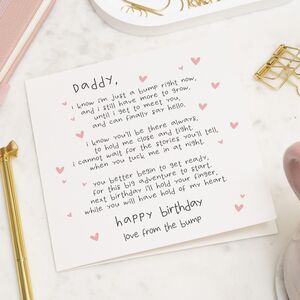 Daddy,
i know i'm just a bump right now,
and i still have more to grow,
until i get to meet you,
and can finally say hello.
i know you'll be there always,
to hold me close and tight.
i cannot wait for the stories you'll tell,
when you tuck me in at night.
you better begin to get ready,
for this big adventure to start.
next birthday i'll hold your finger,
while you will have hold of my heart.
happy birthday
love from the bump